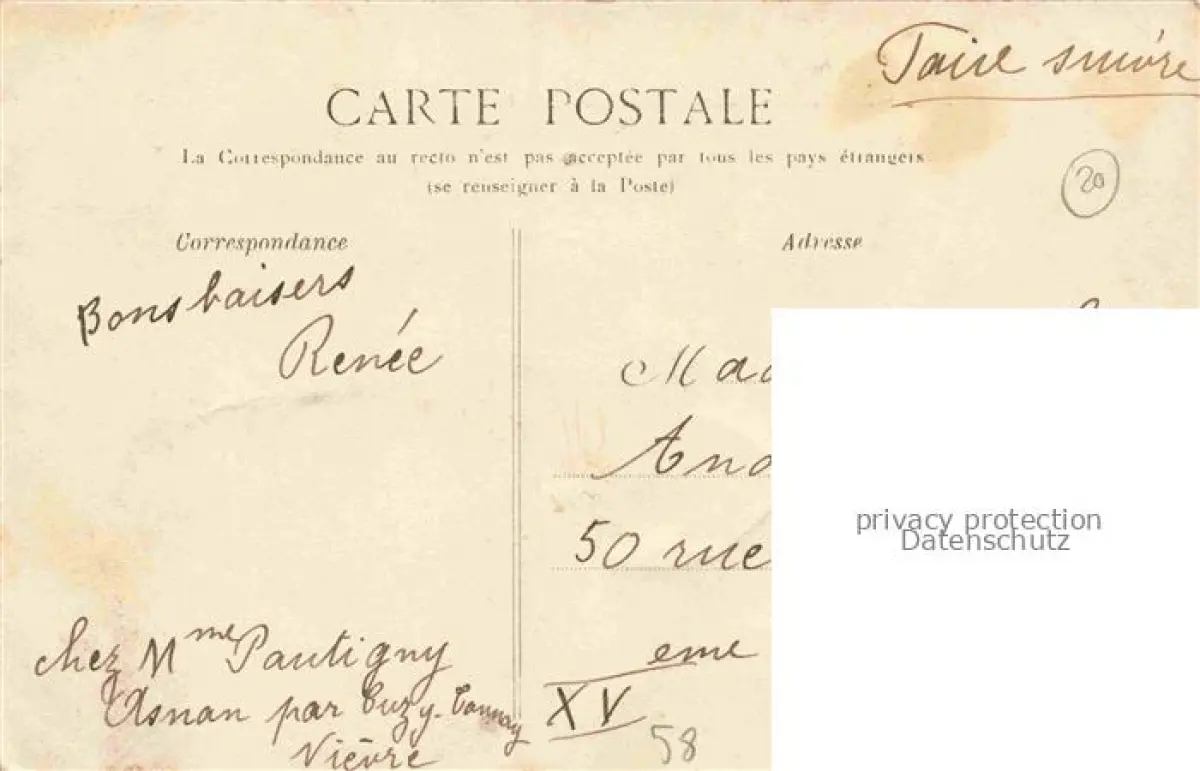 Faire suivre
CARTE POSTALE
La Correspondance au recto n'est pas acceptée par tous les pays étrangers
(se renseigner à la Poste)
20
Correspondance
Adresse
Bons baisers
Renée
Mad
And
50 rue
XV eme
chez Mme Pautigny
Asnan par Cuzy-Tannay
Nièvre
58
privacy protection
Datenschutz